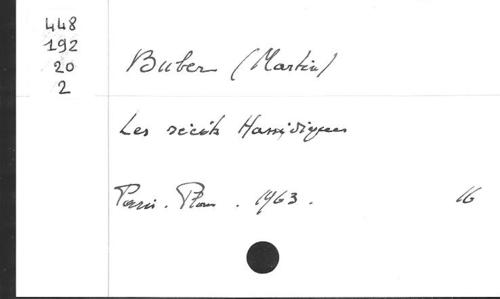 448
192
20
2
Buber (Martin)
Les récits Hassidiques
Paris. Plon. 1963. 16